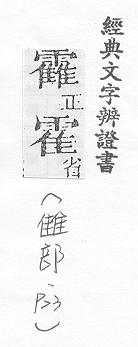 經典文字辨證書
靃正霍省
(雔部.P33)